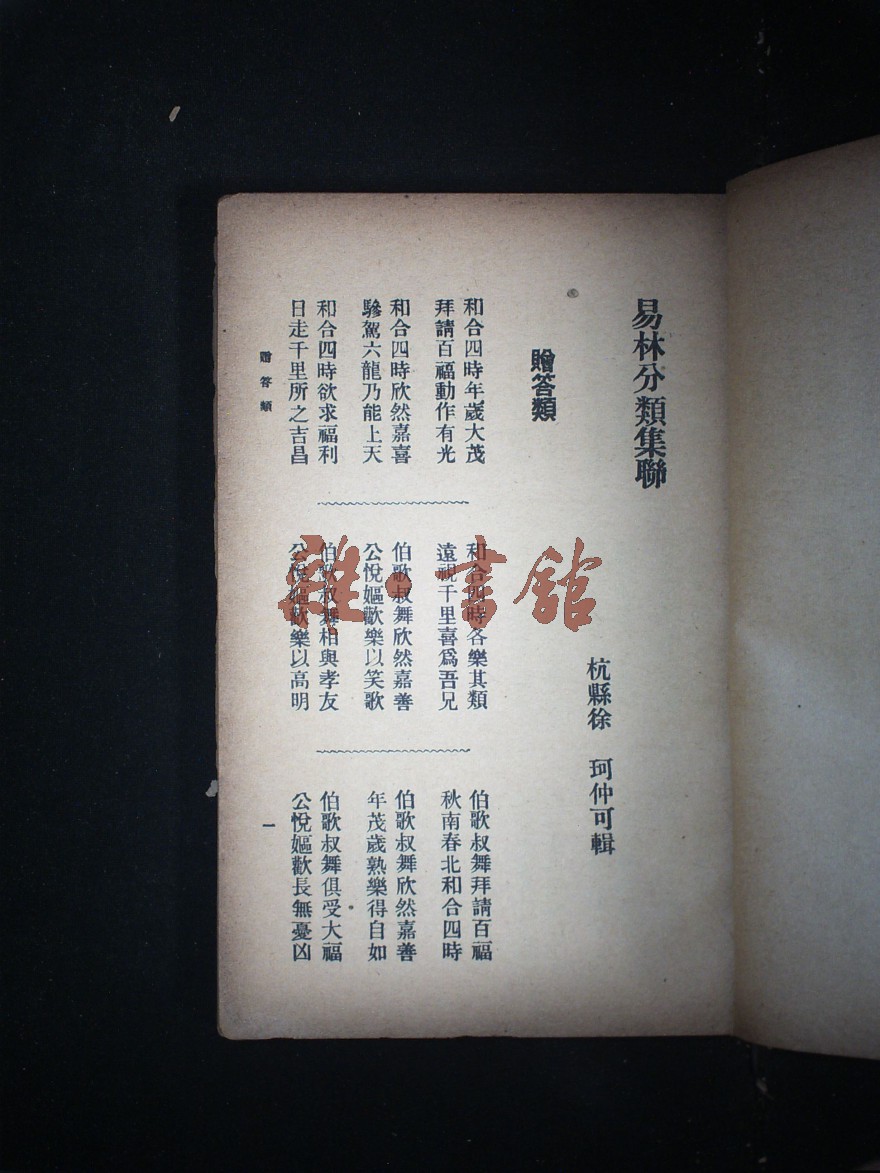 易林分類集聯
杭縣徐 珂仲可輯
贈答類
和合四時年歲大茂
拜請百福動作有光
和合四時欣然嘉喜
驂駕六龍乃能上天
和合四時欲求福利
日走千里所之吉昌
和合四時各樂其類
遠視千里喜爲吾兄
伯歌叔舞欣然嘉善
公悅嫗歡樂以笑歌
伯歌叔舞相與孝友
公悅嫗歡樂以高明
伯歌叔舞拜請百福
秋南春北和合四時
伯歌叔舞欣然嘉善
年茂歲熟樂得自如
伯歌叔舞俱受大福
公悅嫗歡長無憂凶
贈答類
一
雜·書館